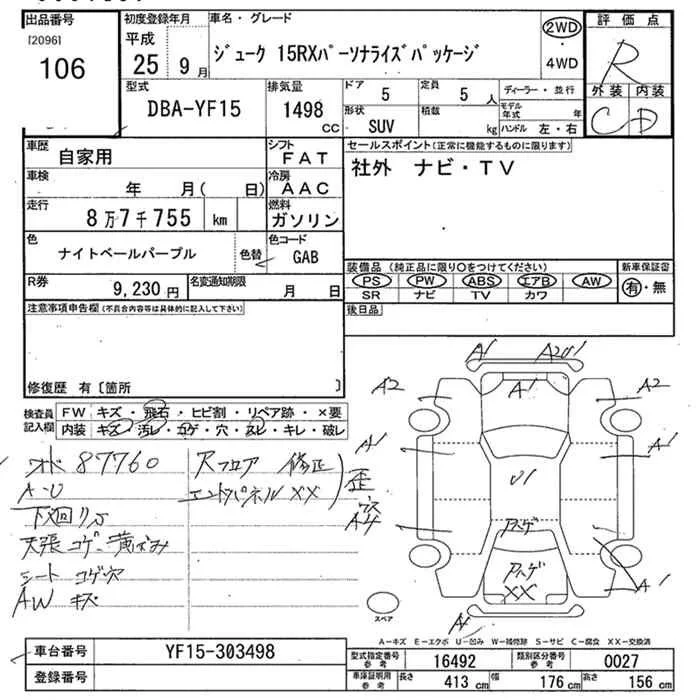 出品番号
[2096]
106
初度登録年月
平成
25 9 月
車名・グレード
ジューク 15RXパーソナライズパッケージ
2WD
・
4WD
評価点
R
外装 内装
C D
型式
DBA-YF15
排気量
1498
CC
ドア
5
定員
5 人
形状
SUV
積載
kg
ディーラー・並行
モデル年式 年
ハンドル 左・右
車歴
自家用
シフト
FAT
車検
年 月( 日)
冷房
AAC
走行
8万7千755 km
燃料
ガソリン
色
ナイトベールパープル
色替
色コード
GAB
R券
9,230円
名変通知期限
月 日
セールスポイント(正常に機能するものに限ります)
社外 ナビ・TV
装備品(純正品に限り○をつけてください)
新車保証書
PS PW ABS エアB AW
有・無
SR ナビ TV カワ
後日品
注意事項申告欄(不具合内容等は具体的に記入して下さい)
修復歴 有〔箇所 〕
検査員
記入欄
FW キズ・飛石・ヒビ割・リペア跡・×要
内装 キズ・汚レ・コゲ・穴・スレ・キレ・破レ
87760
A-U
下廻りサ
天張コゲ
シートコゲ穴
AW キズ
Rフロア 修正
エンドパネル XX
歪
A1 A2U1
A2 A1 A2
A1 A1
U1
A4
A1
XX
スペア
A-キズ E-エクボ U-凹み W-補修跡 S-サビ C-腐食 XX-交換済
車台番号
YF15-303498
登録番号
型式指定番号
参考
16492
類別区分番号
参考
0027
車庫証明用
参考
長さ
413 cm
幅
176 cm
高さ
156 cm